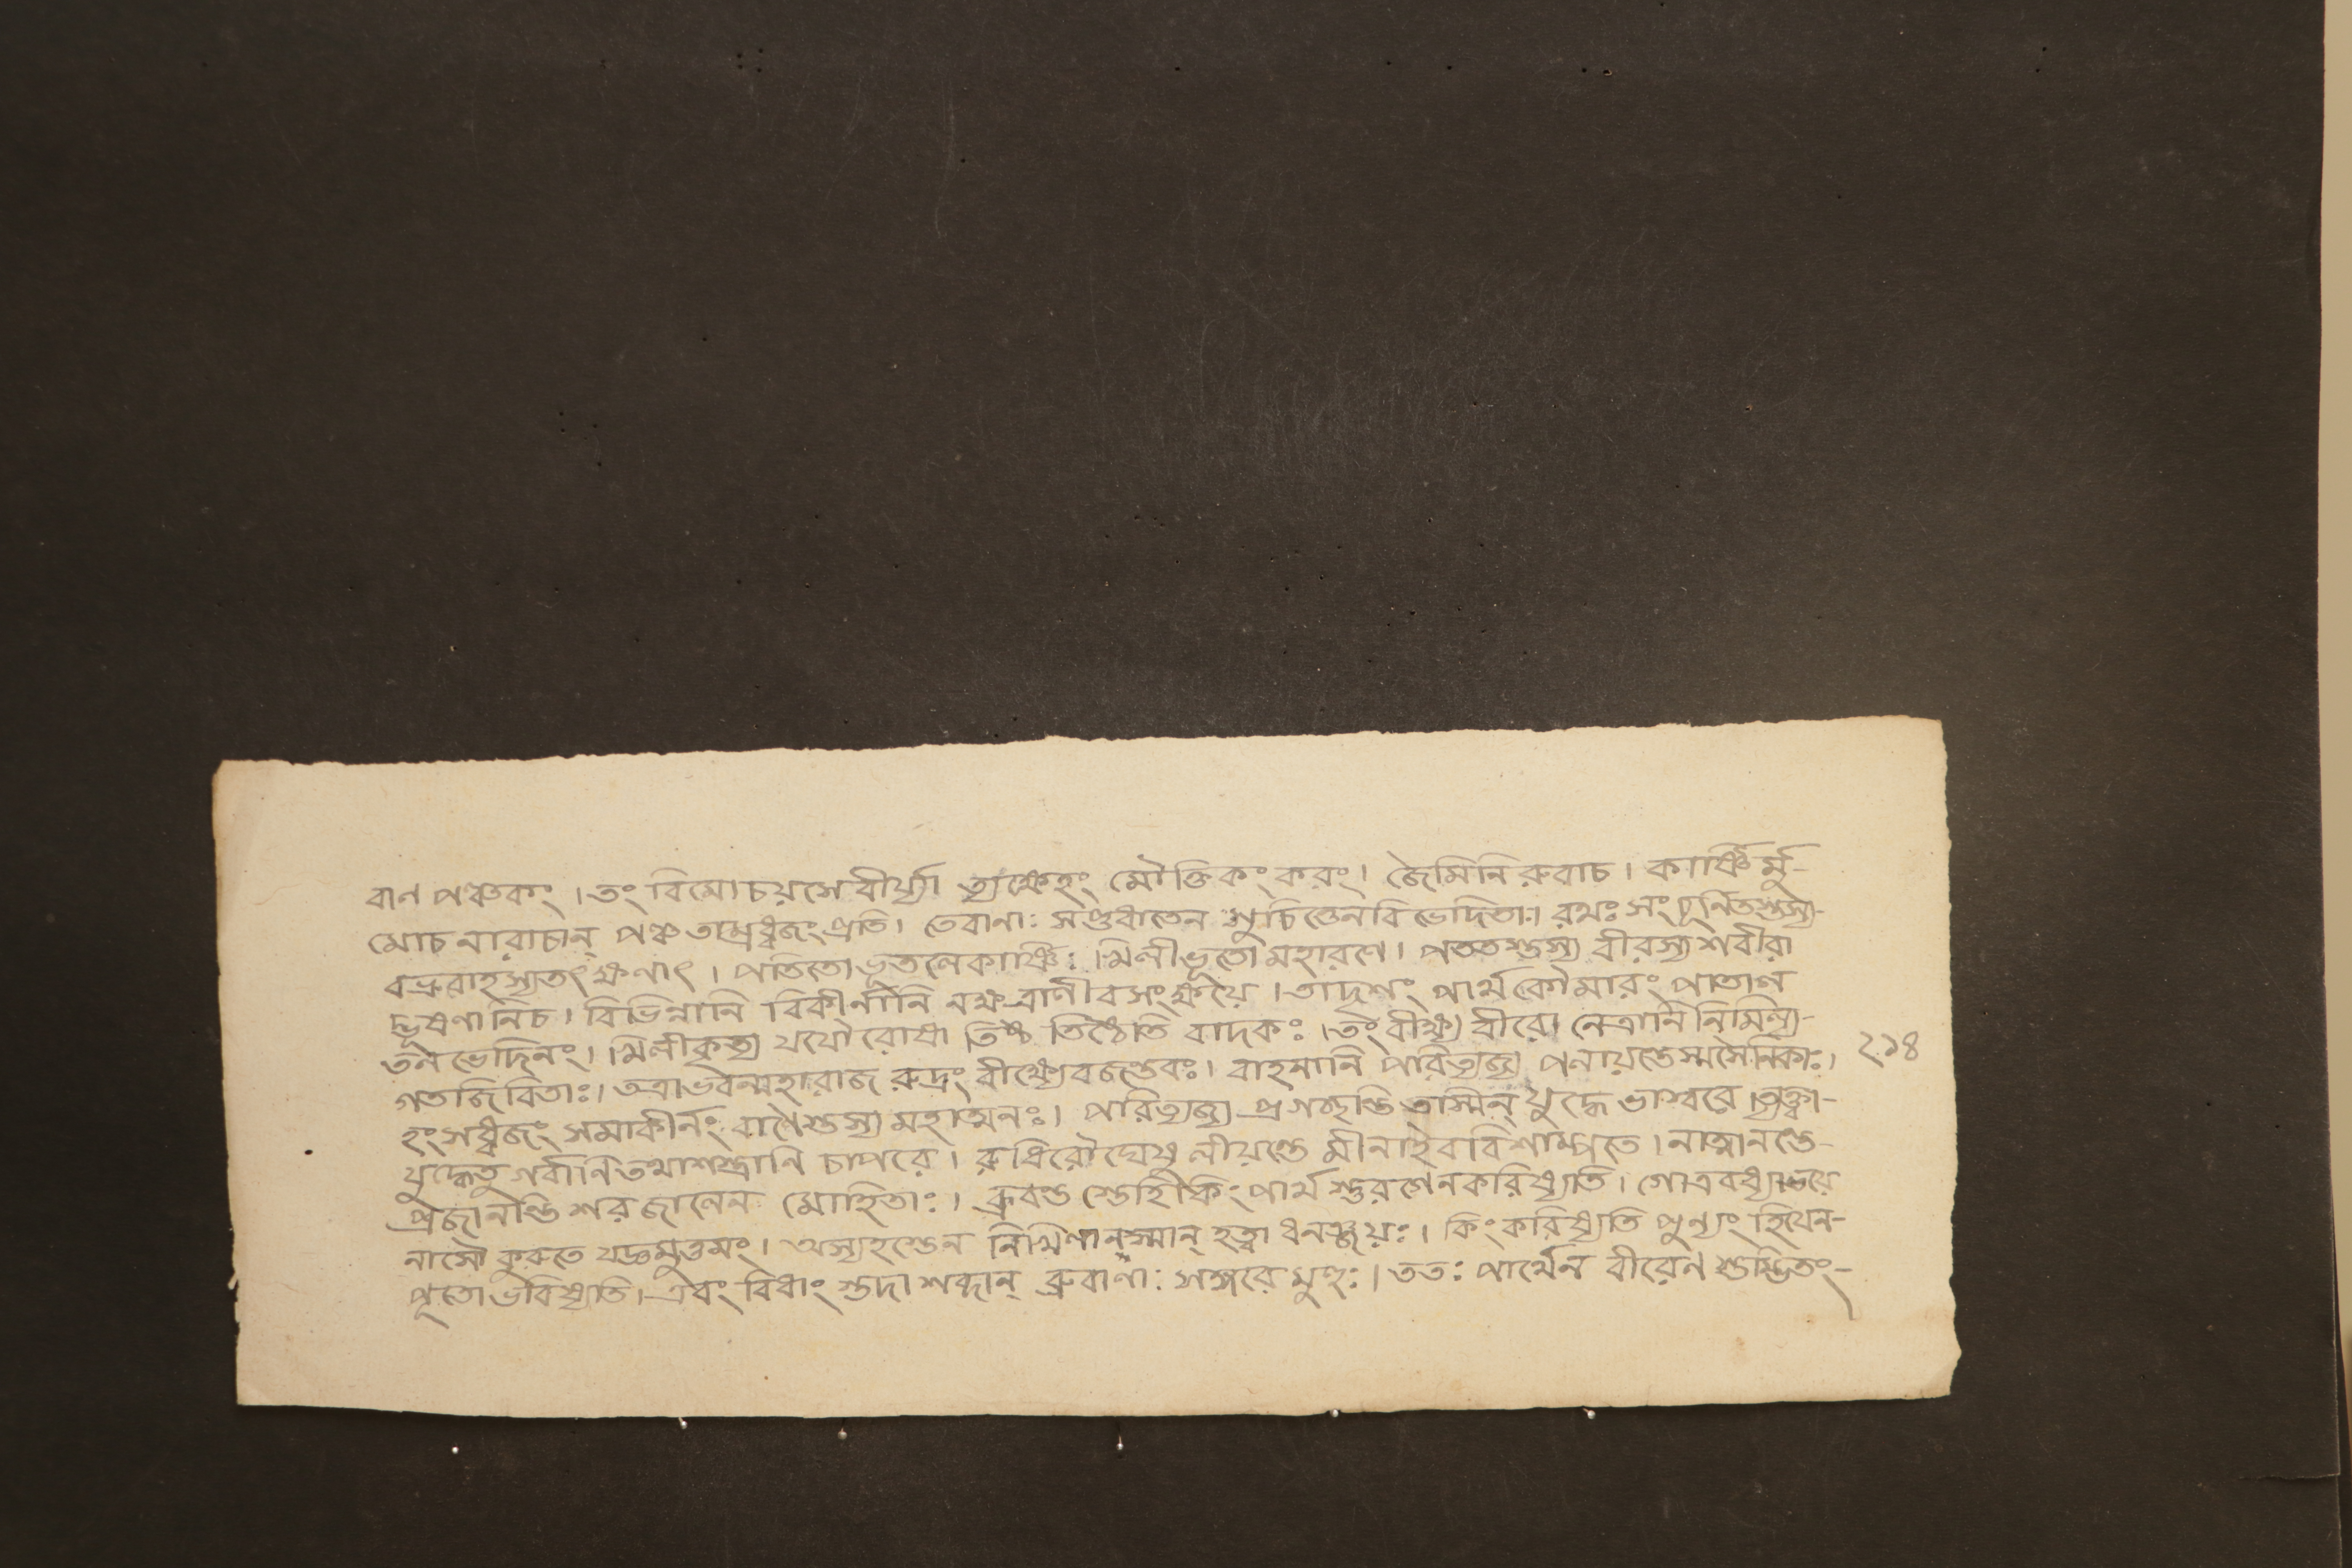 বাণ পঞ্চকং । তং বিমোচয়সে বীর্য্যা ত্যক্ষেহং মৌক্তিকং করং । জৈমিনি রুবাচ । কার্ষ্ণি র্মু-
মোচ নারাচান্ পঞ্চ তাম্রধ্বজং প্রতি । তেবাণাঃ সপ্তধাতেন শুচিত্তেনবিভেদিতাঃ । রথঃ সংচূর্ণিতস্তস্য-
বভ্রুবাহস্যতৎ ক্ষণাৎ । পতিতো ভূতলেকার্ষ্ণিঃ । মিলীভূতো মহারণে । পততস্তস্য বীরস্য শরীরা
দ্ভূষণা নিচ । বিভিন্নানি বিকীর্ণানি নক্ষত্রাণীবসংক্ষয়ে । তাদৃশং পার্থকৌমারং পাতাল
তল ভেদিনং । মিলীকৃত্য যযৌ রোষা তিষ্ঠ তিষ্ঠেতি বাদকঃ । তং বীক্ষ্য বীরো নেত্রানি নিমিল্য-
গতজিবিতাঃ । তত্রাভবন্মহারাজ রুদ্রং বীক্ষ্যেবজন্তবঃ । বাহনানি পরিত্যজ্য পলায়ন্তেস্মসৈনিকাঃ । ২১৪
হংসধ্বজং সমাকীর্ণং বাণৈস্তস্য মহাত্মনঃ । পরিত্যজ্য প্রগচ্ছন্তি তস্মিন্ যুদ্ধে ভাস্বরে । ত্যক্ত্বা-
যুদ্ধেতু গর্বানি তথাশস্ত্রানি চাপরে । রুধিরৌঘেষু লীয়ন্তে মীনাইববিশাম্পতে । নাত্মানন্তে-
প্রজানন্তি শরজালেন মোহিতাঃ । ব্রুবন্ত স্তেহিকিং পার্থ শ্তুরগেনকরিষ্যতি । গোত্রবধ্যাভয়ে
নাসৌ কুরুতে যজ্ঞমুত্তমং । অস্যহস্তেন নির্ম্মিণানস্মান্ হত্বা ধনঞ্জয়ঃ । কিং করিষ্যতি পুন্যং হিযেন-
পূতো ভবিষ্যতি । এবং বিধাং স্তদা শব্দান্ ব্রুবাণাঃ সঙ্গরে মুহুঃ । ততঃ পার্থেন বীরেণ স্তম্ভিতং-